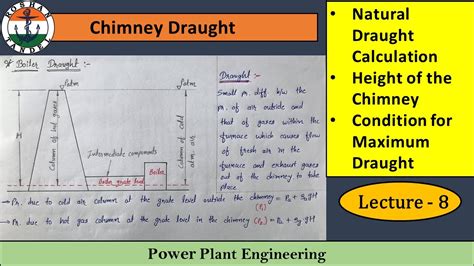 ROSHAN
TANDE
Chimney Draught
• Natural
Draught
Calculation
• Height of the
Chimney
• Condition for
Maximum
Draught
Lecture - 8
* Boiler Draught :-
Patm
Patm
H
Column of hot gases
Column of cold
atm. air
Intermediate components
Boiler
Boiler grate level
Draught :-
Small pr. diff b/w the
pr. of air outside and
that of gases within the
furnace which causes flow
of fresh air in the
furnace and exhaust gases
out of the chimney to take
place.
→ Pr. due to cold air column at the grate level outside the chimney =
→ Pr. due to hot gas column at the grate level in the chimney
Power Plant Engineering